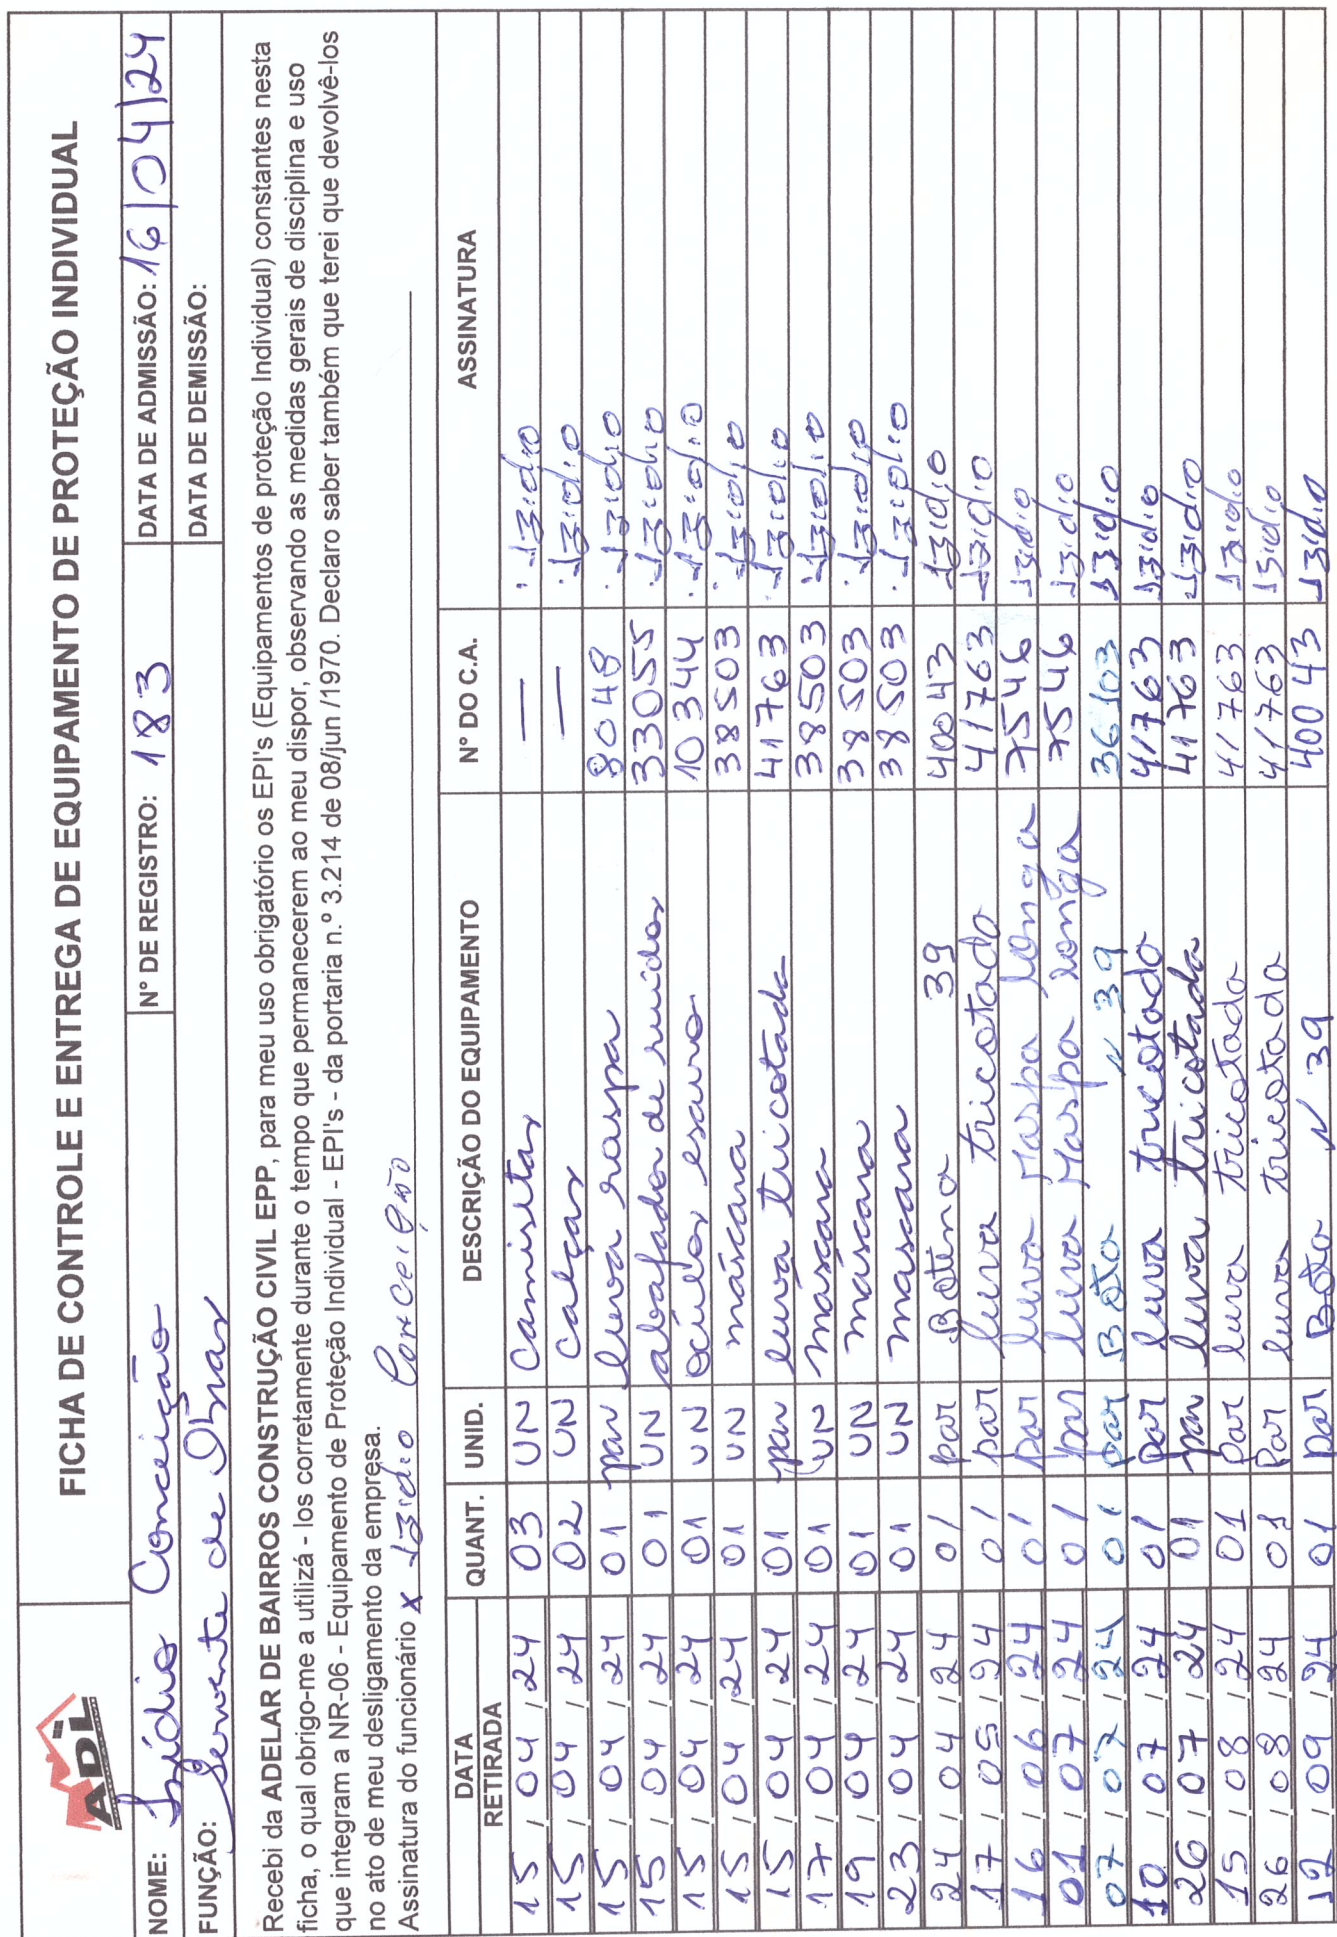 ADL
FICHA DE CONTROLE E ENTREGA DE EQUIPAMENTO DE PROTEÇÃO INDIVIDUAL
NOME: Isídio Conceição N° DE REGISTRO: 183 DATA DE ADMISSÃO: 16/04/24
FUNÇÃO: Servente de Obras DATA DE DEMISSÃO:
Recebi da ADELAR DE BAIRROS CONSTRUÇÃO CIVIL EPP, para meu uso obrigatório os EPI's (Equipamentos de proteção Individual) constantes nesta
ficha, o qual obrigo-me a utilizá - los corretamente durante o tempo que permanecerem ao meu dispor, observando as medidas gerais de disciplina e uso
que integram a NR-06 - Equipamento de Proteção Individual - EPI's - da portaria n.º 3.214 de 08/jun /1970. Declaro saber também que terei que devolvê-los
no ato de meu desligamento da empresa.
Assinatura do funcionário x Izidio Conceição
DATA RETIRADA QUANT. UNID. DESCRIÇÃO DO EQUIPAMENTO N° DO C.A. ASSINATURA
15/04/24 03 UN Camisetas — Izidio
15/04/24 02 UN calças — Izidio
15/04/24 01 par luva raspa 8048 Izidio
15/04/24 01 UN abafador de ruidos 33055 Izidio
15/04/24 01 UN óculos escuro 10344 Izidio
15/04/24 01 UN máscara 38503 Izidio
15/04/24 01 par luva tricotada 41763 Izidio
17/04/24 01 UN máscara 38503 Izidio
19/04/24 01 UN máscara 38503 Izidio
23/04/24 01 UN mascara 38503 Izidio
24/04/24 01 par Botina 39 40043 Izidio
17/05/24 01 par luva tricotado 41763 Izidio
16/06/24 01 par luva Raspa longa 7546 Izidio
01/07/24 01 par luva Raspa longa 7546 Izidio
07/07/24 01 par Bota N 39 36103 Izidio
10/07/24 01 par luva tricotado 41763 Izidio
26/07/24 01 par luva tricotada 41763 Izidio
15/08/24 01 Par luva tricotada 41763 Izidio
26/08/24 01 Par luva tricotada 41763 Izidio
12/09/24 01 par Bota N 39 40043 Izidio